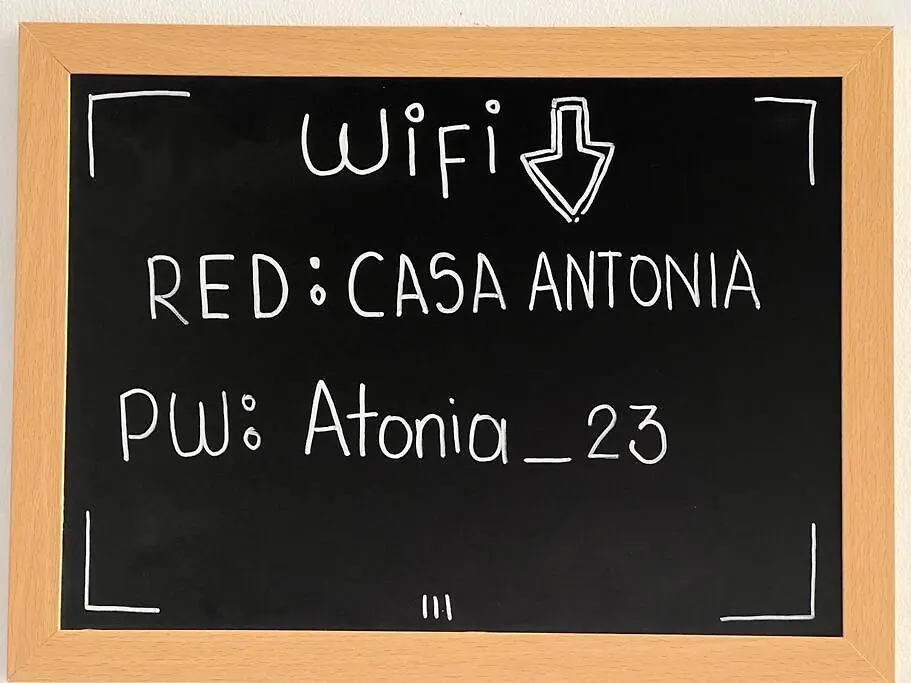 WiFi
RED: CASA ANTONIA
PW: Atonia_23